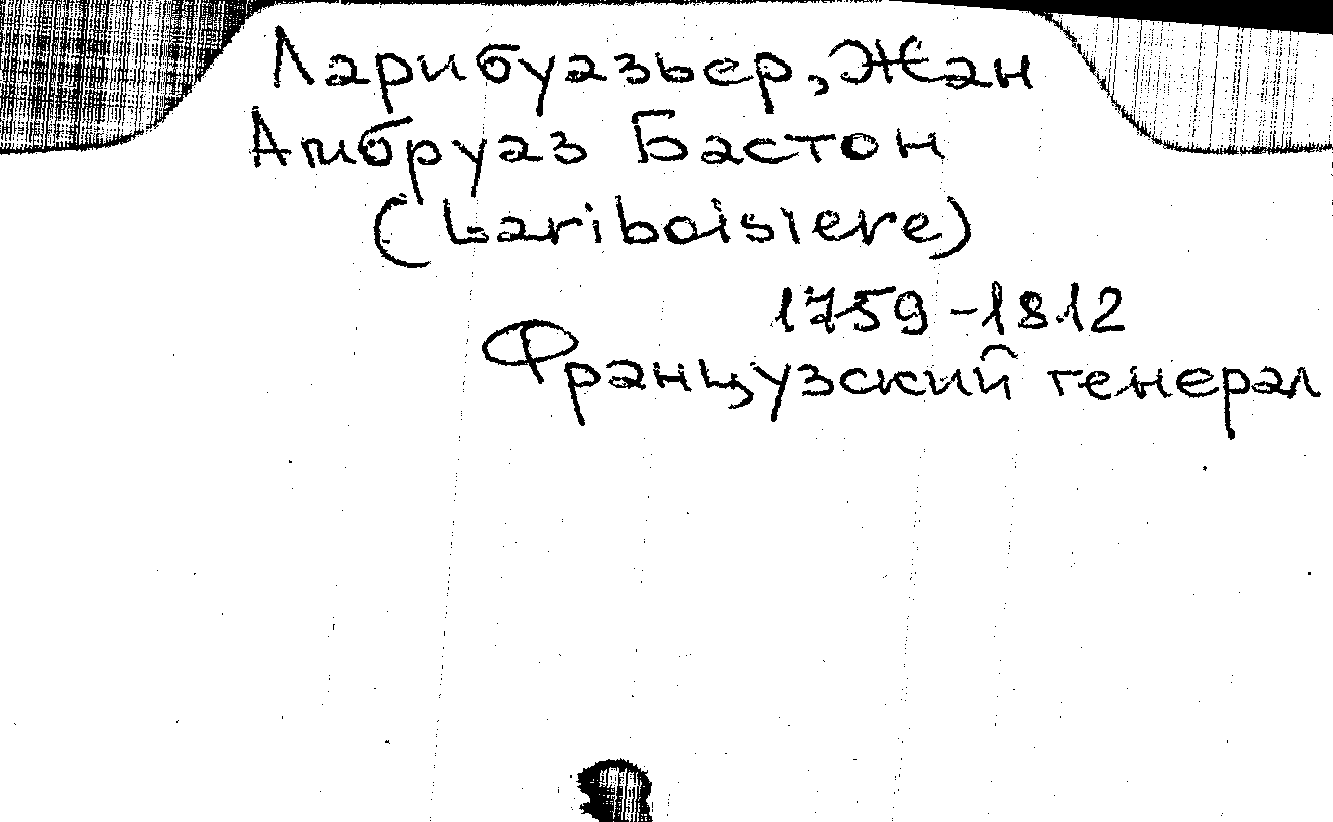 Ларибуазьер, Жан
Амбруаз Бастон
(Lariboisiere)
1759-1812
Французский генерал